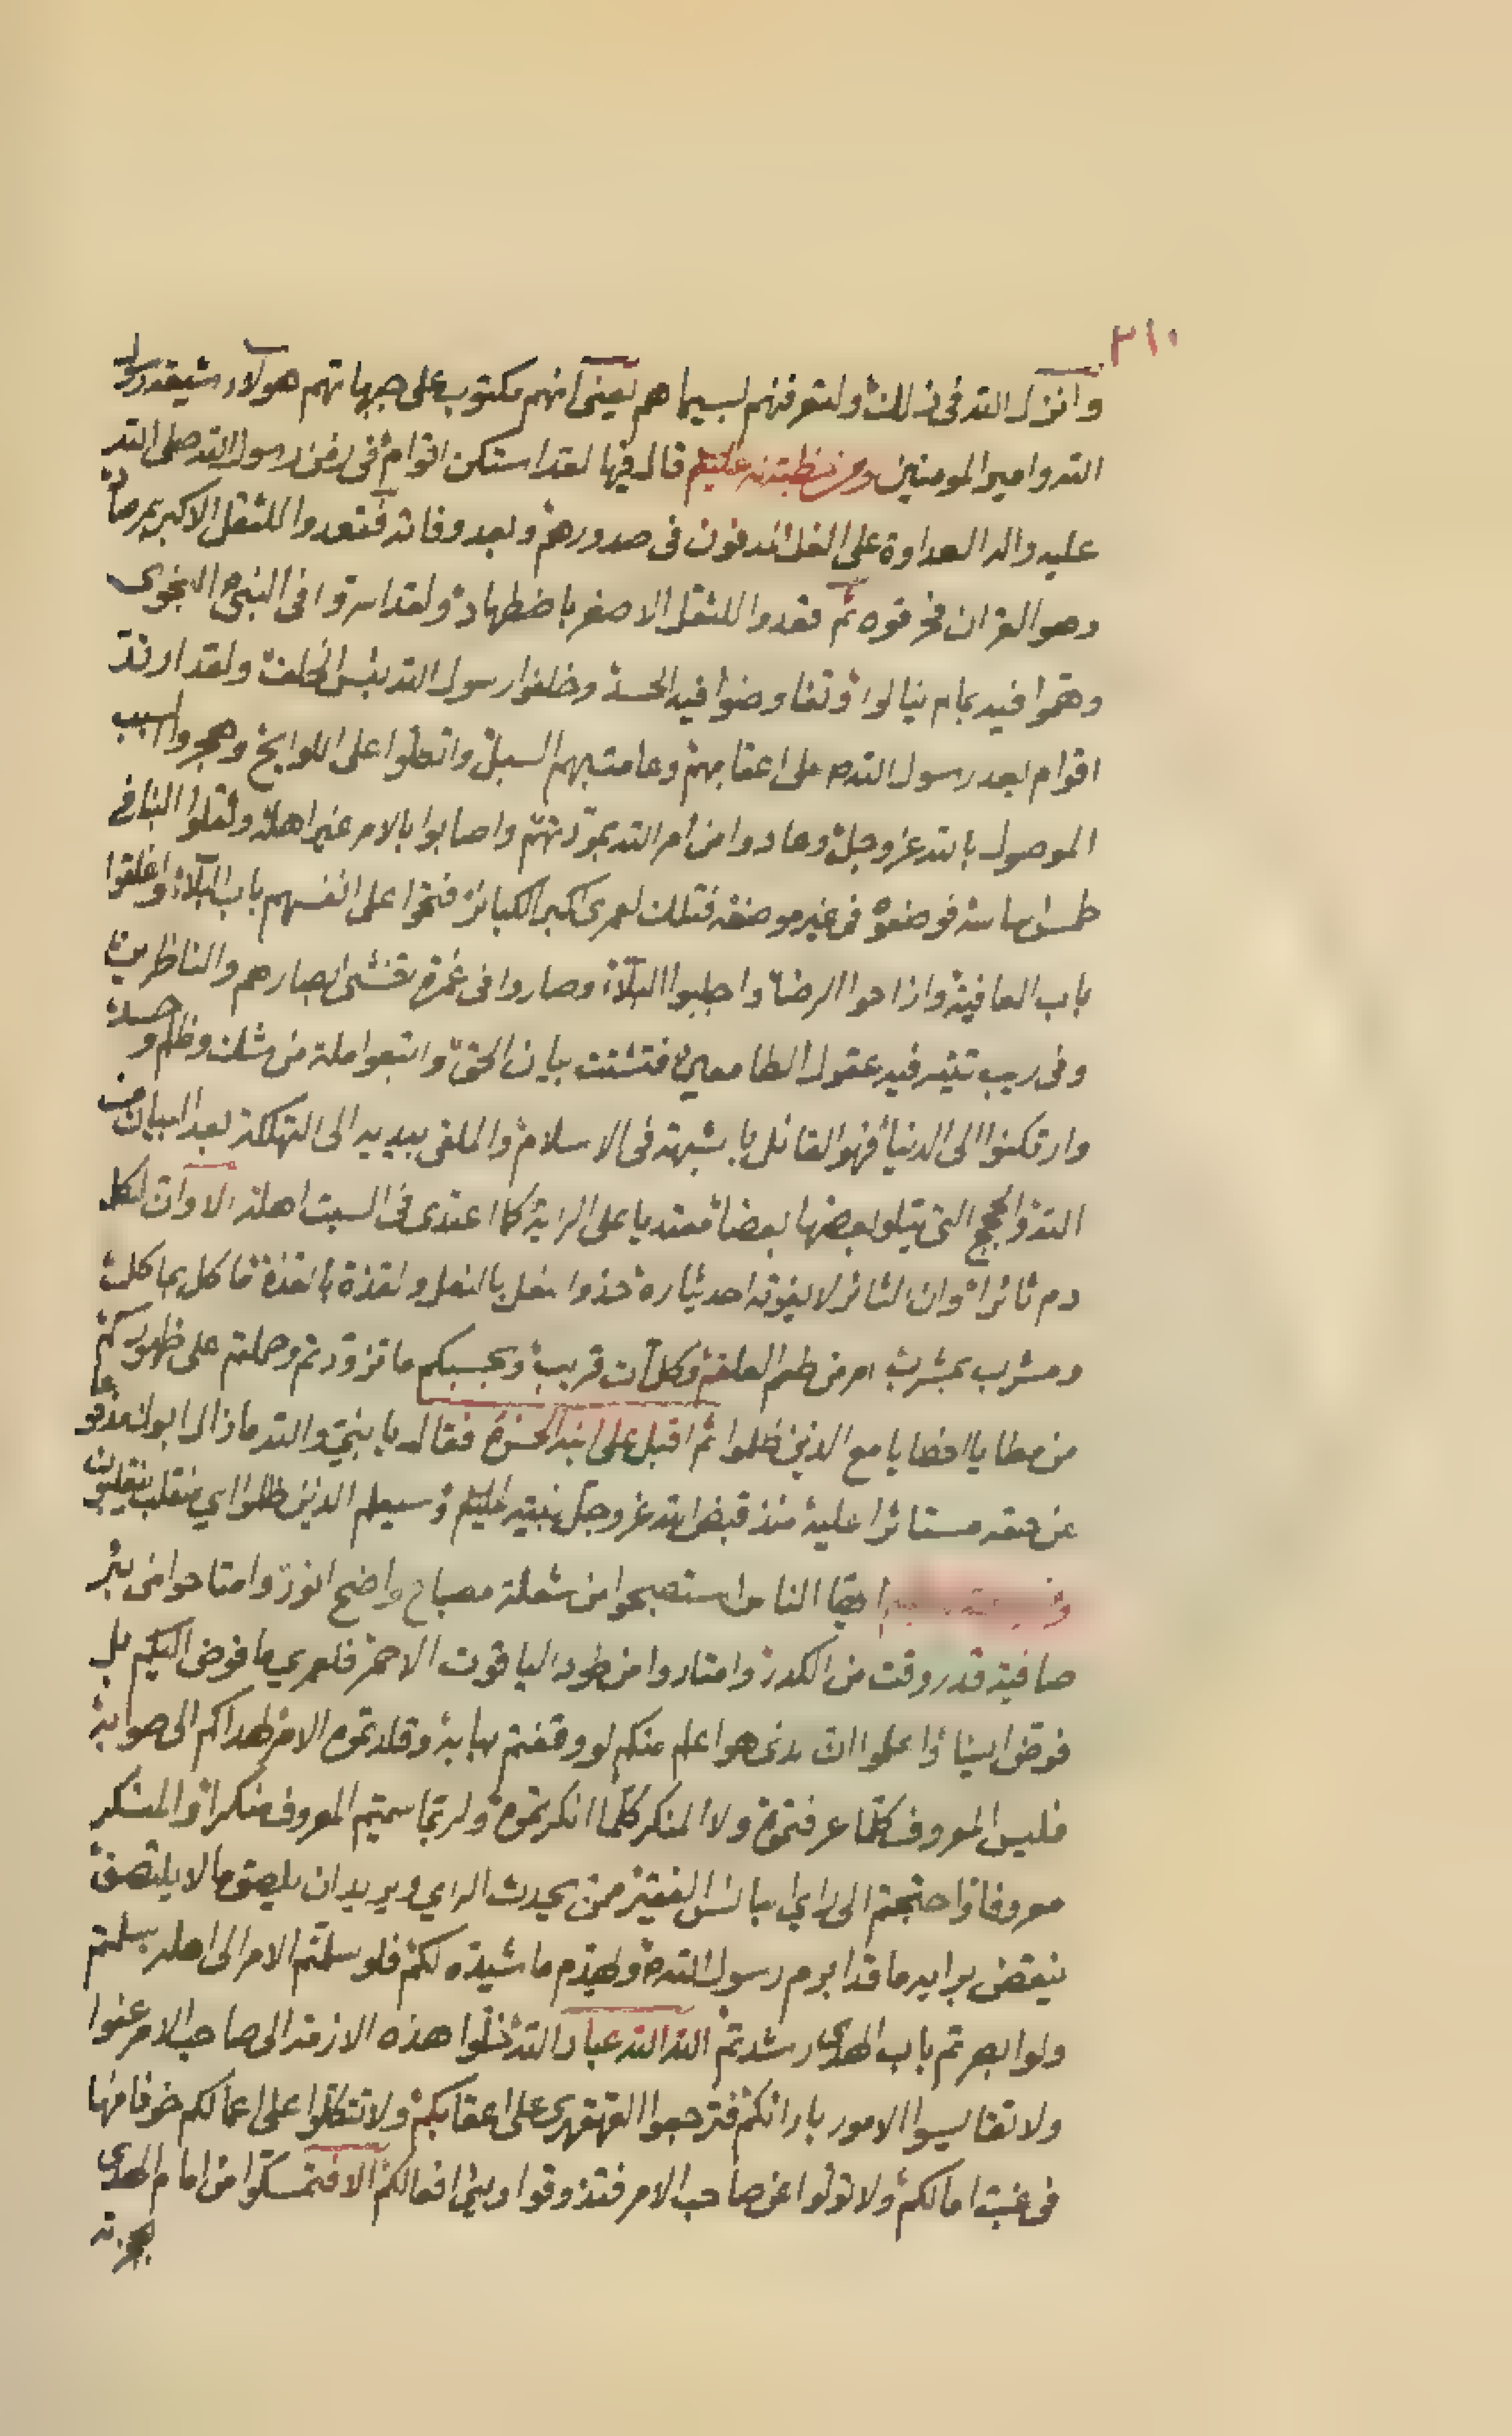 ٣١٠
وانزل الله في ذلك ولتعرفنهم بسيماهم يعني انهم مكتوب على جبهاتهم هولاء شيعة رسول
الله وامير المومنين ومن خطبة له عليه السلم قال فيها لقد استكن اقوام في زمن رسول الله صلى الله
عليه واله العداوة على الغل المدفون في صدورهم وبعد وفاته فقعدوا للثقل الاكبر بمرصاد
وهو القران فحرفوه ثم قعدوا للثقل الاصغر باضطهاده ولقد اسروا في النبي النجوى
وهموا فيه بما لم ينالوا وتفاوضوا فيه الحسد وخلفوا رسول الله بئس الخلف ولقد ارتد
اقوام بعد رسول الله ص على اعقابهم وعامتبهم السبل واتكلوا على اللوايح وهجروا السبب
الموصول بالله عز وجل وعادوا من امر الله بمودتهم واصابوا بالامر غير اهله ونقلوا البنا في
طمس ساسه فوضعوه في غير موضعه فتلك لعمرى اكبر الكبائر فتحوا على انفسهم باب البلاء واغلقوا
باب العافية وازاحوا الرضا واجلبوا البلاء وصاروا في غمرة تغشى ابصارهم والناظرين
وفي ريب تتيه فيه عقول الطامعين فتشتت بيان الحق واتبعوا ملة من شك وظلم وحسد
وارتكنوا الى الدنيا فهو القائل باشبهه في الاسلام والملقى بيديه الى التهلكة بعد البيان من
الله والحجج التي يتلو بعضها بعضا معتديا على الراية كما اعتدى في السبت اهله الا وان لكل
دم ثائرا وان الثائر لا يفوته احد بثاره حذو النعل بالنعل والقذة بالقذة فاكل بماكل
ومشرب بمشرب امر من طعم العلقم وكل ات قريب وبحسبكم ما تزودتم وحملتم على ظهوركم
من مطايا الخطايا مع الذين ظلموا ثم اقبل على ابنه الحسن ع فقال يا بني والله ما زال ابوك مدفوعا
عن حقه مستاثرا عليه منذ قبض الله عز وجل نبيه عليه السلم وسيعلم الذين ظلموا اي منقلب ينقلبون
ايها الناس استصبحوا من شعلة مصباح واضح انور وامتاحوا من بئر
صافية قد روقت من الكدر وامتاروا من طود الياقوت الاحمر فلعمري ما فوض اليكم بل
فوض الينا واعلموا ان لدى هو اعلم منكم لو وقفتم ببابه وقلدتموه الامر لهداكم الى صوابه
فليس المعروف كلما عرفتموه ولا المنكر كلما انكرتموه ولربما سميتم المعروف منكرا والمنكر
معروفا واحتجتم الى راي البائس الفقير ممن يحدث الراي ويريد ان يلصق ما لا يلتصق
ينقض برايه ما قد ابرم رسول الله ص ولهدم ما شيده لكم فلو سلمتم الامر الى اهله سلمتم
ولو ابصرتم باب الهدى رشدتم الله الله عباد الله خلوا هذه الازمة الى صاحب الامر عنوا
ولا تقايسوا الامور بارائكم فترجعوا القهقرى على اعقابكم ولا تتكلوا على اعمالكم خوفا منها
في غب امالكم ولا تولوا عن صاحب الامر فتذوقوا وبئى افعالكم الا فتمسكوا من امام الهدى